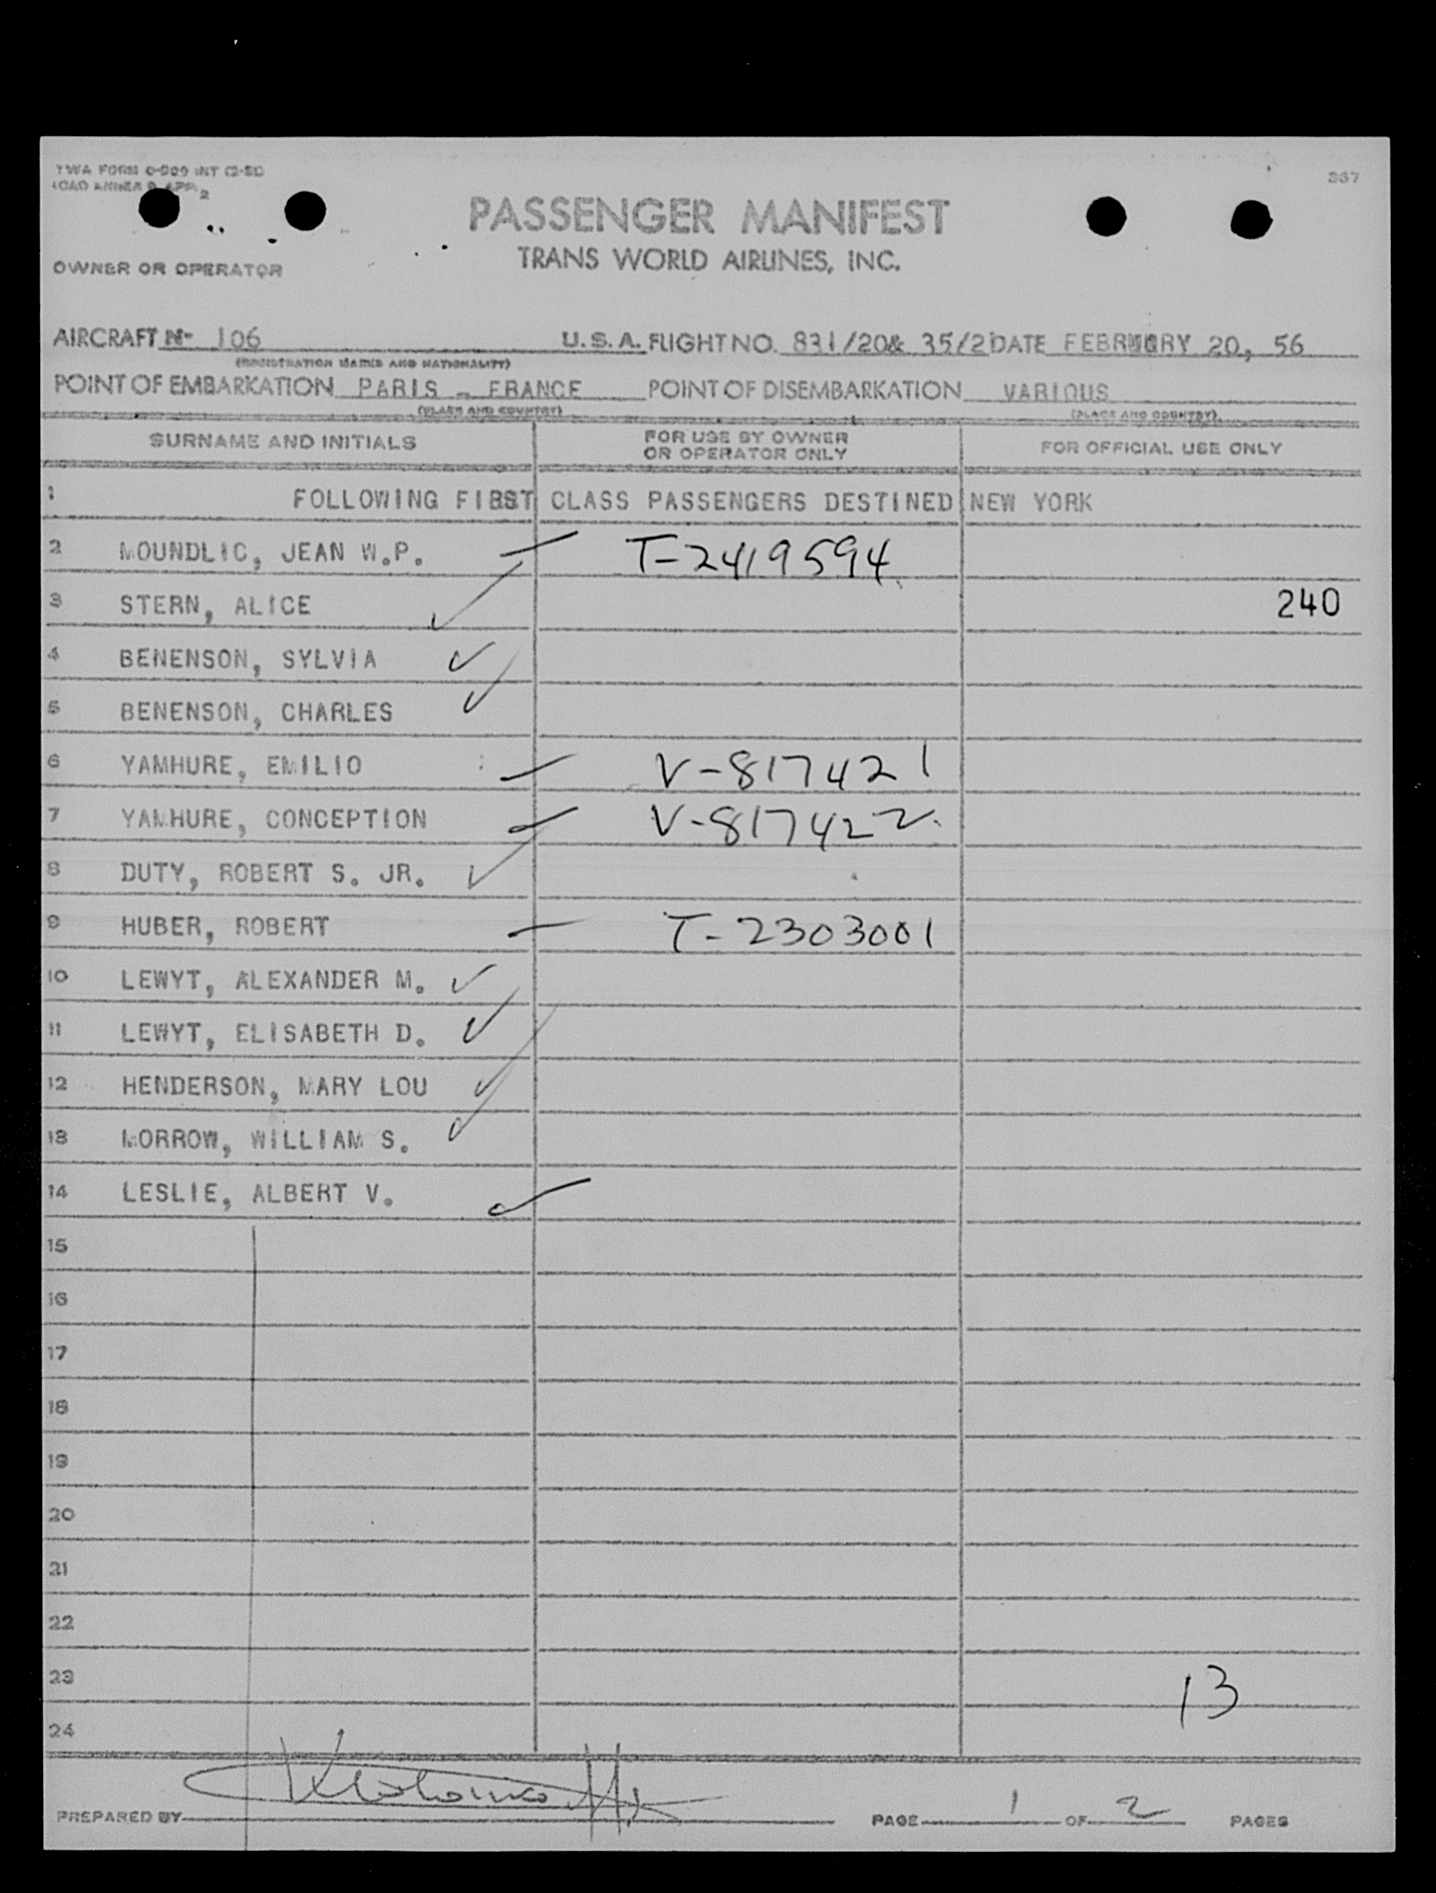 TWA FORM 0-509 INT (2-51)
ICAO ANNEX 9 APP. 2
367
PASSENGER MANIFEST
TRANS WORLD AIRLINES, INC.
OWNER OR OPERATOR
AIRCRAFT Nº 106 U.S.A. FLIGHT NO. 831/20& 35/21 DATE FEBRUARY 20, 56
(REGISTRATION MARKS AND NATIONALITY)
POINT OF EMBARKATION PARIS - FRANCE POINT OF DISEMBARKATION VARIOUS
(PLACE AND COUNTRY) (PLACE AND COUNTRY)
SURNAME AND INITIALS FOR USE BY OWNER OR OPERATOR ONLY FOR OFFICIAL USE ONLY
1 FOLLOWING FIRST CLASS PASSENGERS DESTINED NEW YORK
2 MOUNDLIC, JEAN W.P. T-2419594
3 STERN, ALICE 240
4 BENENSON, SYLVIA
5 BENENSON, CHARLES
6 YAMHURE, EMILIO V-817421
7 YAMHURE, CONCEPTION V-817422
8 DUTY, ROBERT S. JR.
9 HUBER, ROBERT T-2303001
10 LEWYT, ALEXANDER M.
11 LEWYT, ELISABETH D.
12 HENDERSON, MARY LOU
13 MORROW, WILLIAM S.
14 LESLIE, ALBERT V.
15
16
17
18
19
20
21
22
23 13
24
PREPARED BY PAGE 1 OF 2 PAGES